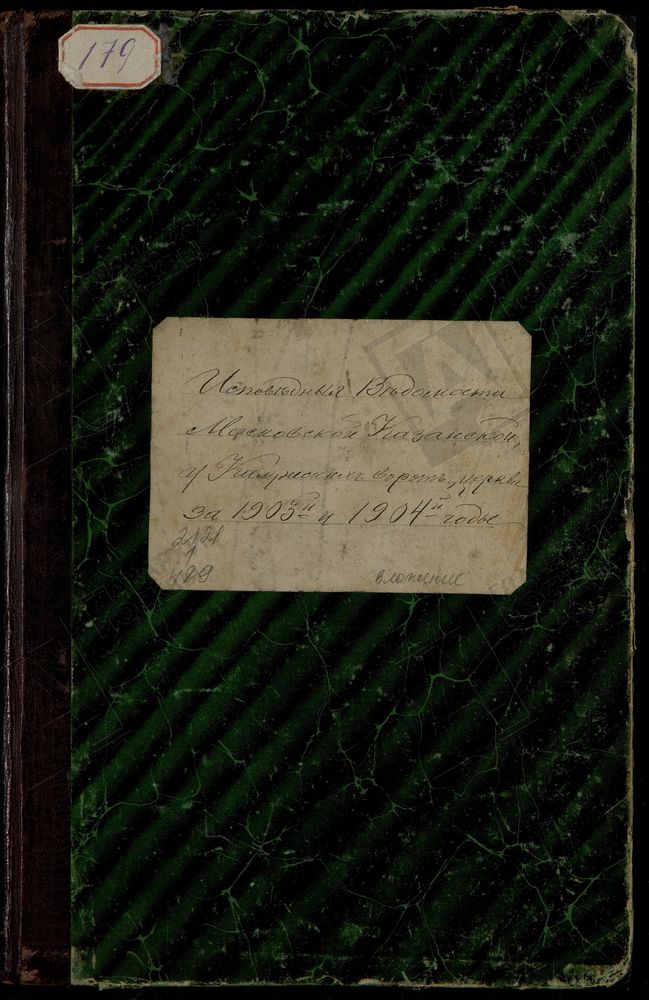 179
Исповѣдныя Вѣдомости
Московской Казанской,
у Калужскихъ воротъ, церкви
за 1903й и 1904й годы
2121
1
429
вложение